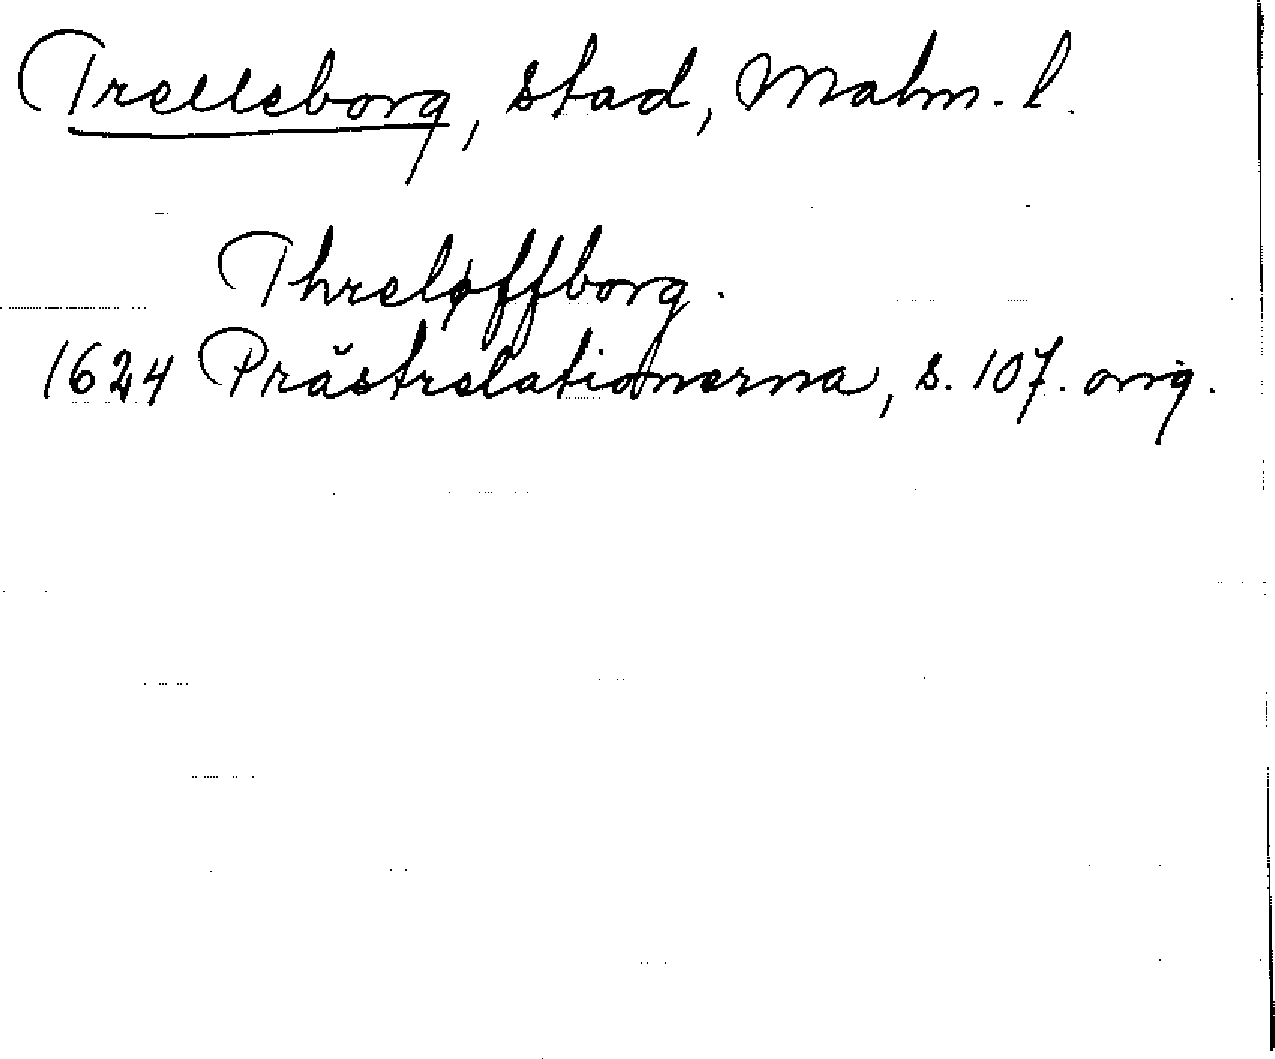 Trelleborg, stad, Malm. l.
Threløffborg.
1624 Prästrelationerna, s. 107. orig.